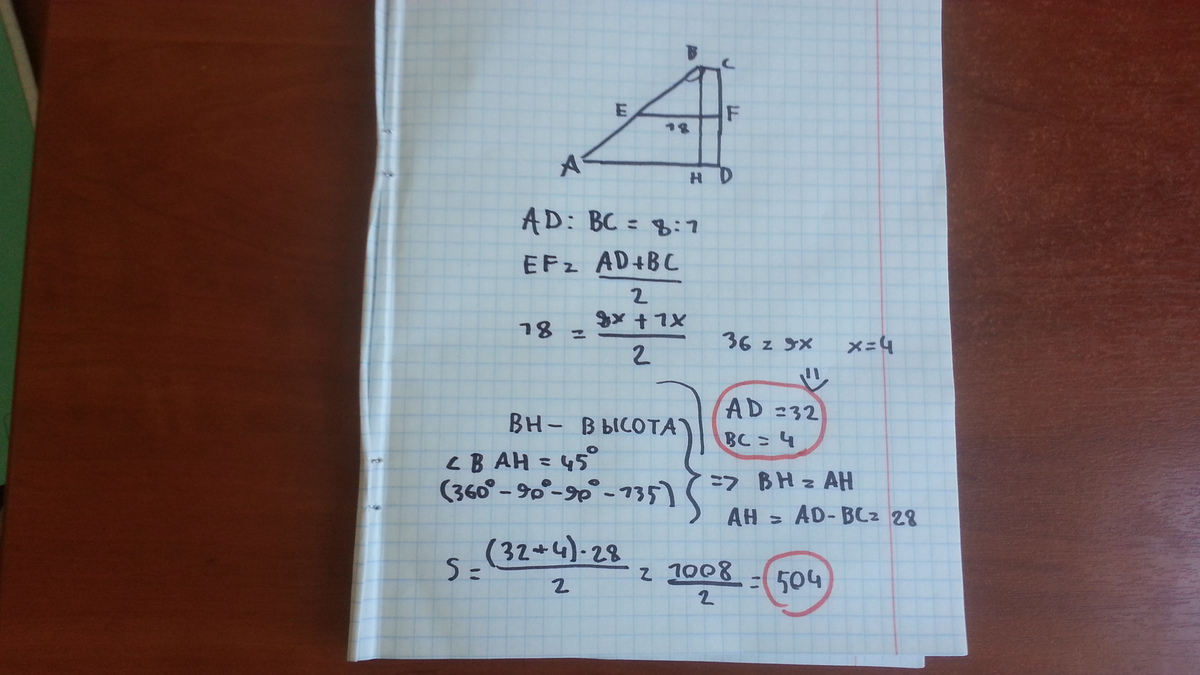 B C
E F
18
A H D
AD : BC = 8:1
EF = AD+BC / 2
18 = 8x + 1x / 2 36 = 9x x=4
AD = 32
BC = 4
BH – ВЫСОТА
∠BAH = 45°
(360° - 90° - 90° - 135) => BH = AH
AH = AD - BC = 28
S = (32+4)·28 / 2 = 1008 / 2 = 504